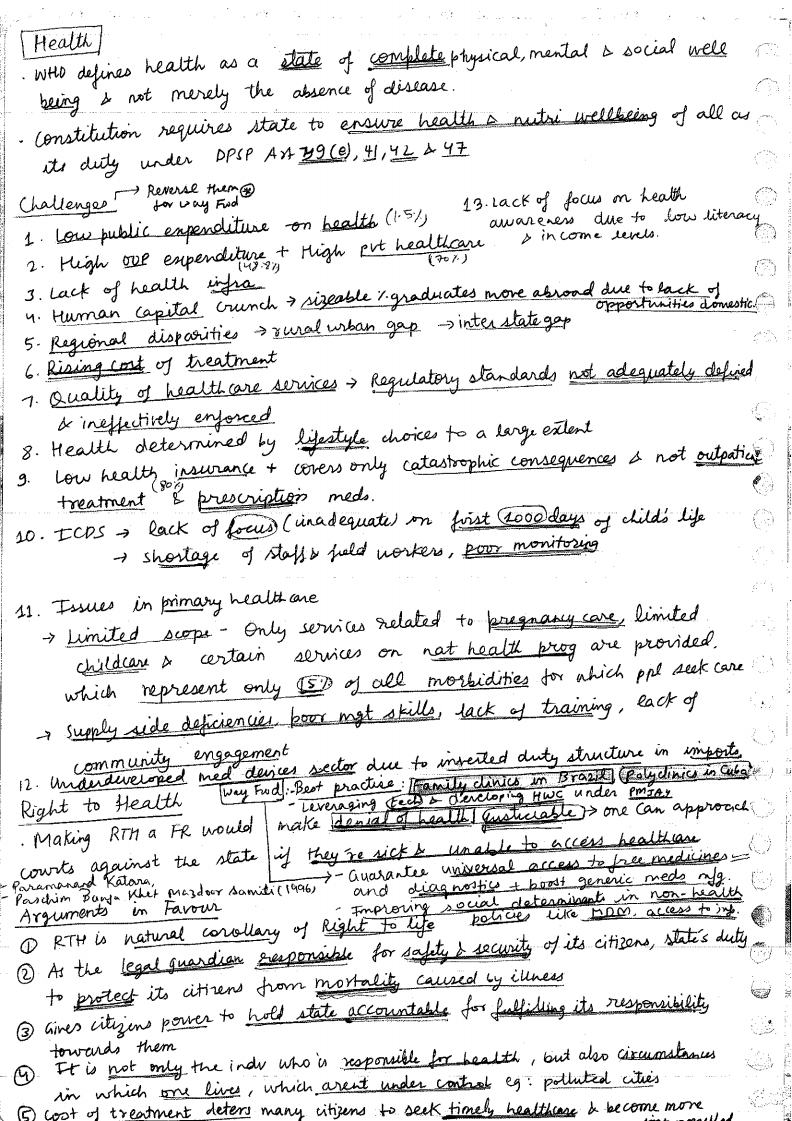 Health
· WHO defines health as a state of complete physical, mental & social well
being & not merely the absence of disease.
· Constitution requires state to ensure health & nutri wellbeing of all as
its duty under DPSP Art 39(e), 41, 42 & 47
Challenges → Reverse them
for way Fwd
1. Low public expenditure on health (1.5%)
2. High OOP expenditure + High pvt healthcare
(48.8%) (70%)
13. Lack of focus on health
awareness due to low literacy
& income levels.
3. Lack of health infra
4. Human Capital Crunch → sizeable % graduates move abroad due to lack of
opportunities domestic.
5. Regional disparities → rural urban gap → inter state gap
6. Rising cost of treatment
7. Quality of healthcare services → Regulatory standards not adequately defined
& ineffectively enforced
8. Health determined by lifestyle choices to a large extent
9. Low health insurance + covers only catastrophic consequences & not outpatient
(80%)
treatment & prescription meds.
10. ICDS → lack of focus (inadequate) on first 1000 days of child's life
→ shortage of staff & field workers, poor monitoring
11. Issues in primary healthcare
→ Limited scope - Only services related to pregnancy care, limited
childcare & certain services on nat health prog are provided.
which represent only 15% of all morbidities for which ppl seek care
→ Supply side deficiencies, poor mgt skills, lack of training, lack of
community engagement
12. Underdeveloped med devices sector due to inverted duty structure in imports
Way Fwd :- Best practice : Family clinics in Brazil, Polyclinics in Cuba
- Leveraging tech & developing HWC under PMJAY
Right to Health
· Making RTH a FR would make denial of health justiciable → one can approach
courts against the state if they're sick & unable to access healthcare
→ - Guarantee universal access to free medicines
and diagnostics + boost generic meds mfg.
- Improving social determinants in non-health
policies like MDM, access to
- Paramanand Katara,
- Paschim Banga Khet Mazdoor Samiti (1996)
Arguments in Favour
① RTH is natural corollary of Right to life
② As the legal guardian responsible for safety & security of its citizens, state's duty
to protect its citizens from mortality caused by illness
③ Gives citizens power to hold state accountable for fulfilling its responsibility
towards them
④ It is not only the indv who is responsible for health, but also circumstances
in which one lives, which arent under control eg: polluted cities
⑤ Cost of treatment deters many citizens to seek timely healthcare & become more